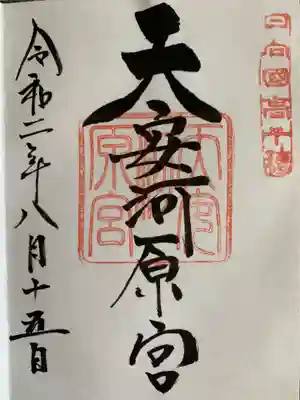 日向國高千穂
天安河原宮
天安
原宮
令和二年八月十五日